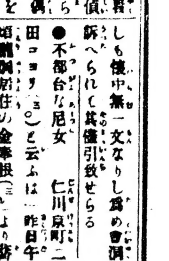 しも懐中無一文なりし為め會洞
訴へられて其儘引致せらる
●不都合な尼女　仁川泉町一
田コヨリ(三〇)と云ふは一昨日午
頃龍洞居住の金奉根(三